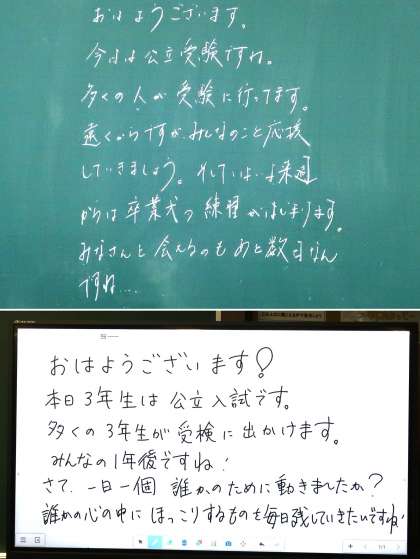 おはようございます。
今日は公立受験ですね。
多くの人が受験に行ってます。
遠くからですが、みんなのこと応援
していきましょう。そしていよいよ来週
からは卒業式の練習がはじまります。
みなさんと会えるのもあと数日なん
ですね…
おはようございます!
本日3年生は公立入試です。
多くの3年生が受検に出かけます。
みんなの1年後ですね!
さて、一日一個 誰かのために動きましたか?
誰かの心の中にほっこりするものを毎日残していきたいですね!